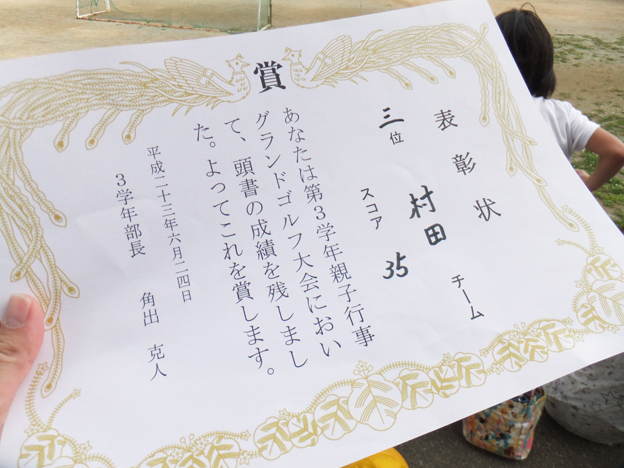 賞
表彰状
村田 チーム
三位 スコア 35
あなたは第3学年親子行事
グランドゴルフ大会におい
て、頭書の成績を残しまし
た。よってこれを賞します。
平成二十三年六月二四日
3学年部長 角出 克人